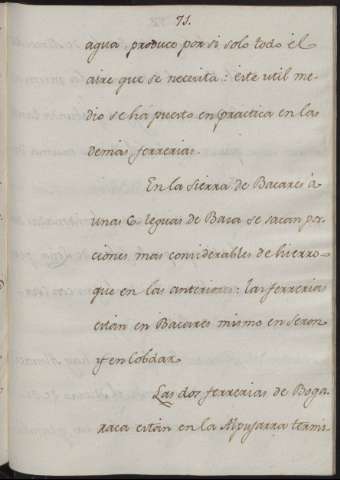 71.
agua produce por si solo todo el
aire que se necesita: este util me-
dio se há puesto en practica en las
demas ferrerias.
En la Sierra de Bacares á
unas 6 leguas de Baza se sacan por-
ciones mas considerables de hierro
que en las anteriores: las ferrerias
están en Bacares mismo en Seron
y en Cobdar
Las dos ferrerias de Boga-
raca están en la Alpujarra termi-